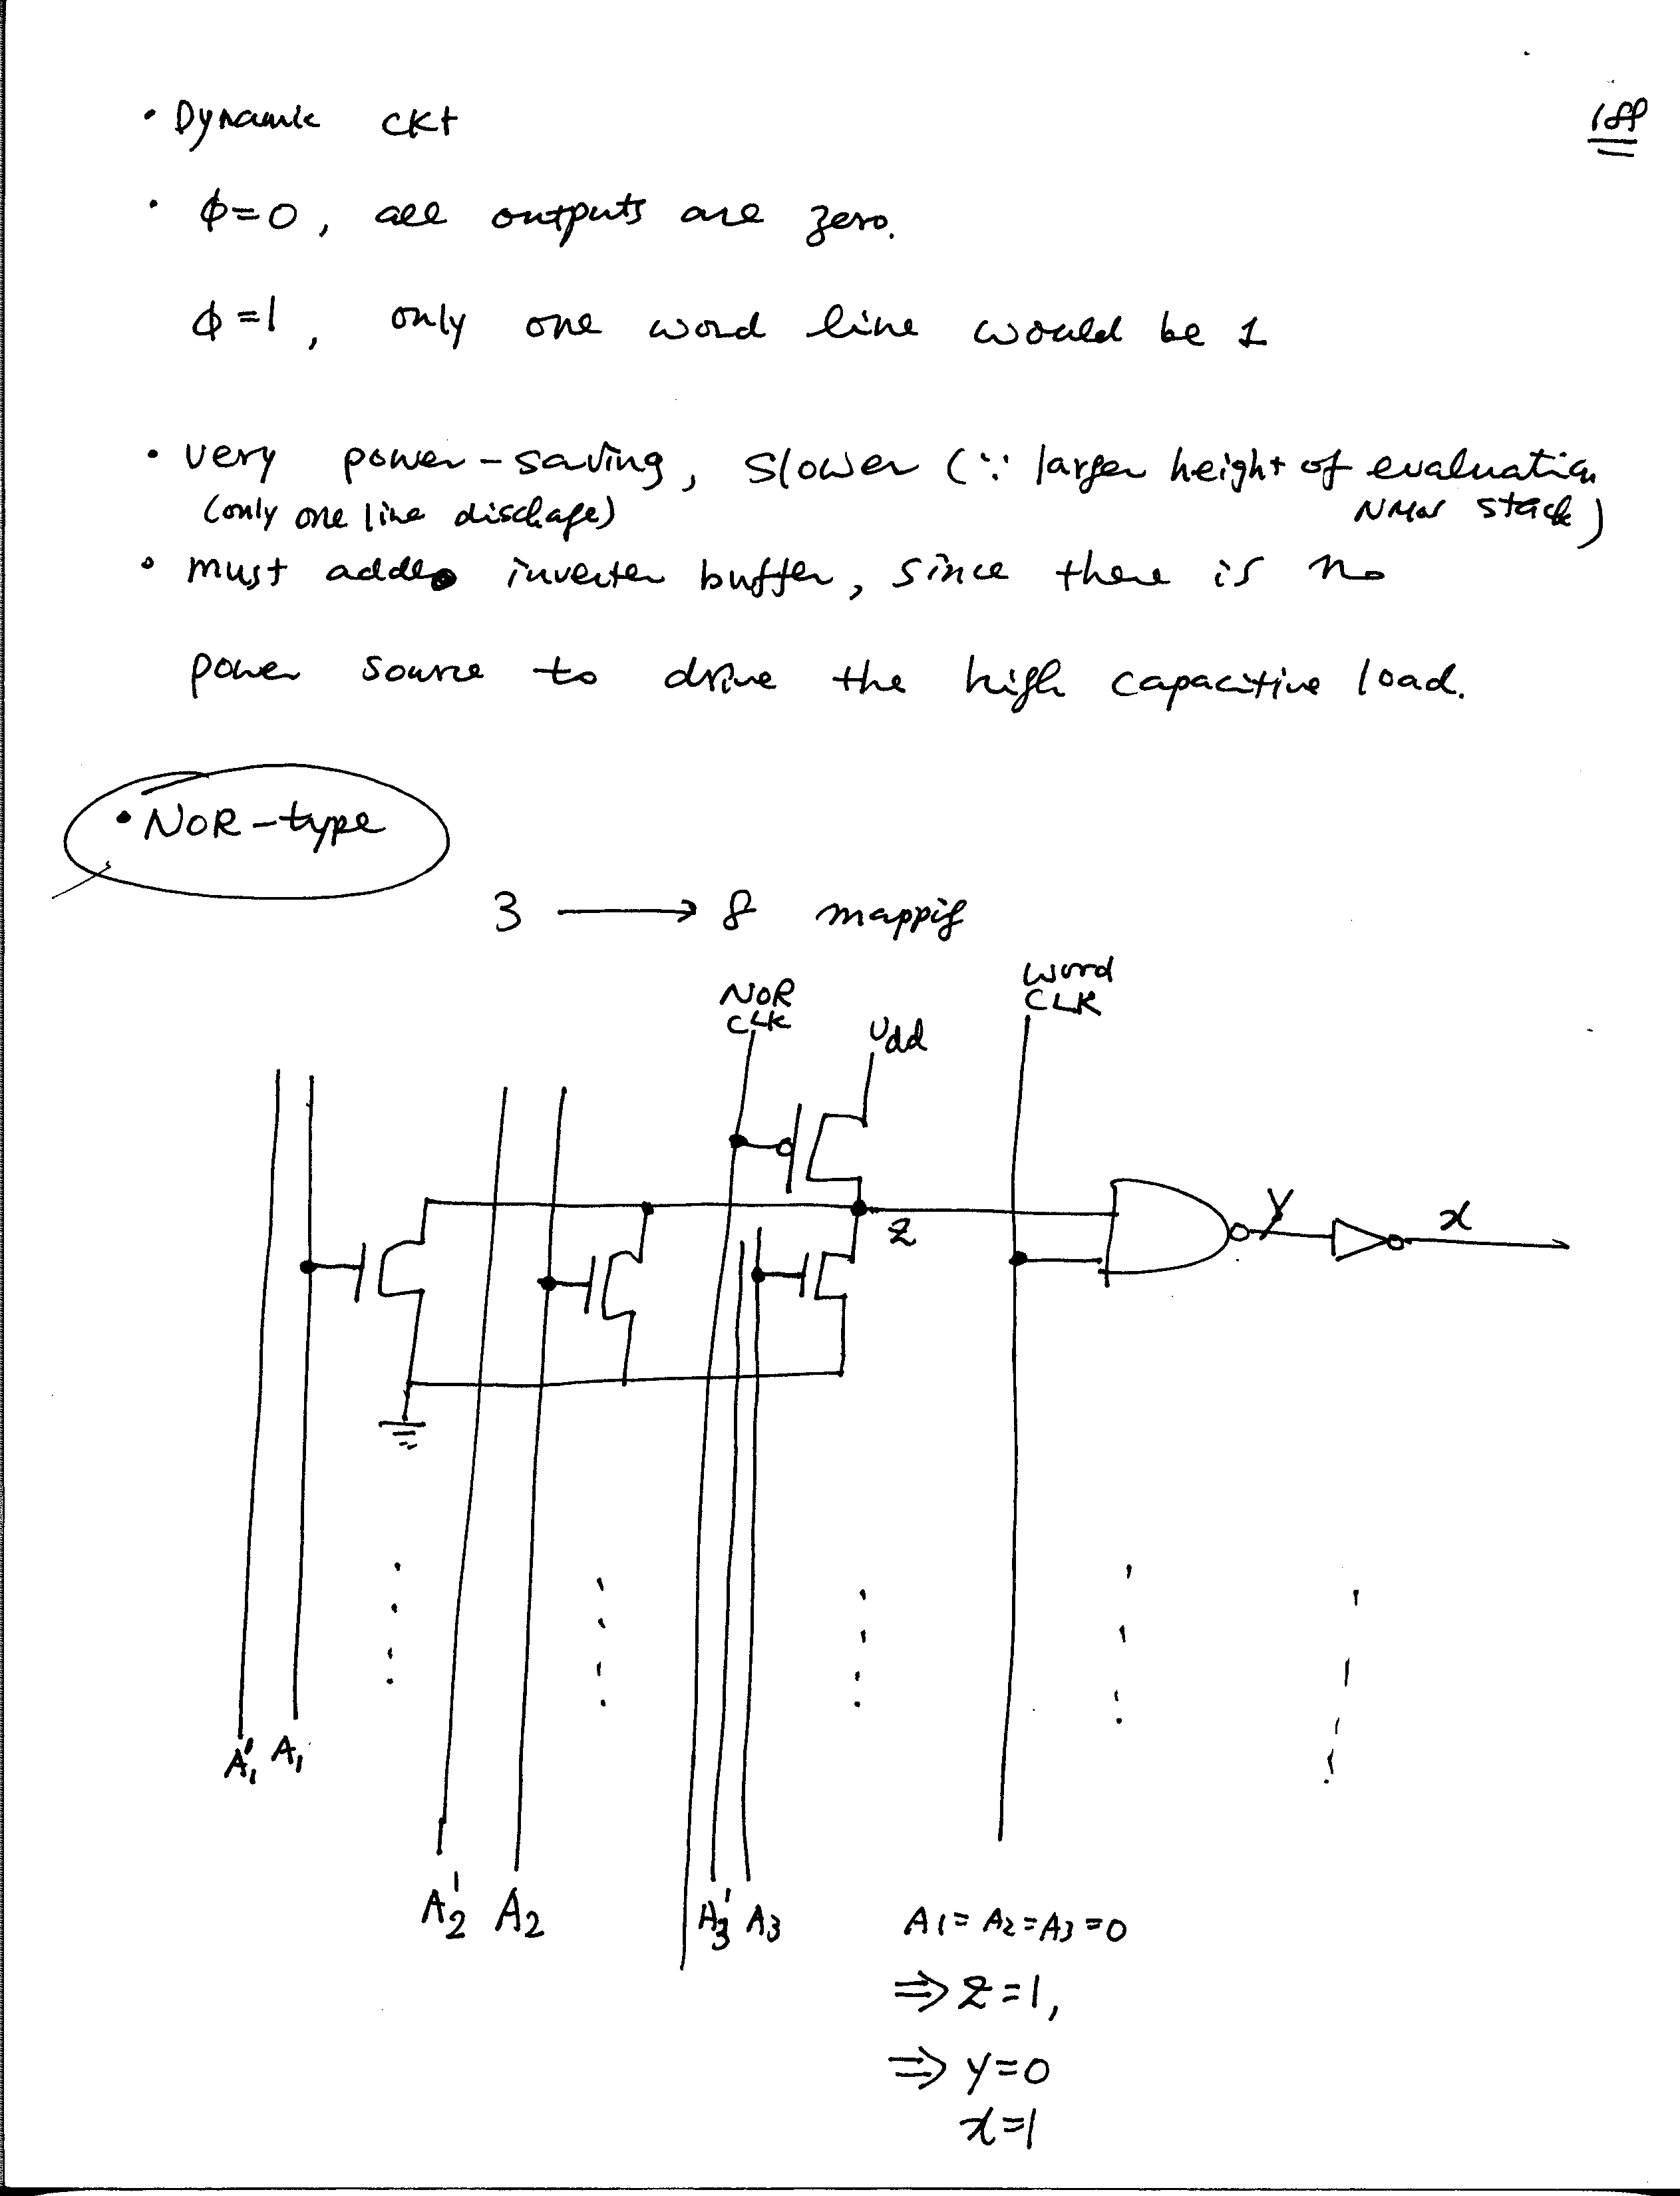 188
• Dynamic ckt
• ϕ=0, all outputs are zero.
ϕ=1, only one word line would be 1
• very power-saving, slower (∵ larger height of evaluation
(only one line dischage) NMOS stack)
• must add inverter buffer, since there is no
power source to drive the high capacitive load.
• NOR-type
3 → 8 mappig
NOR
CLK
Vdd
Word
CLK
Z
Y
x
A1' A1
A2' A2
A3' A3
A1=A2=A3=0
⇒ Z=1,
⇒ Y=0
x=1